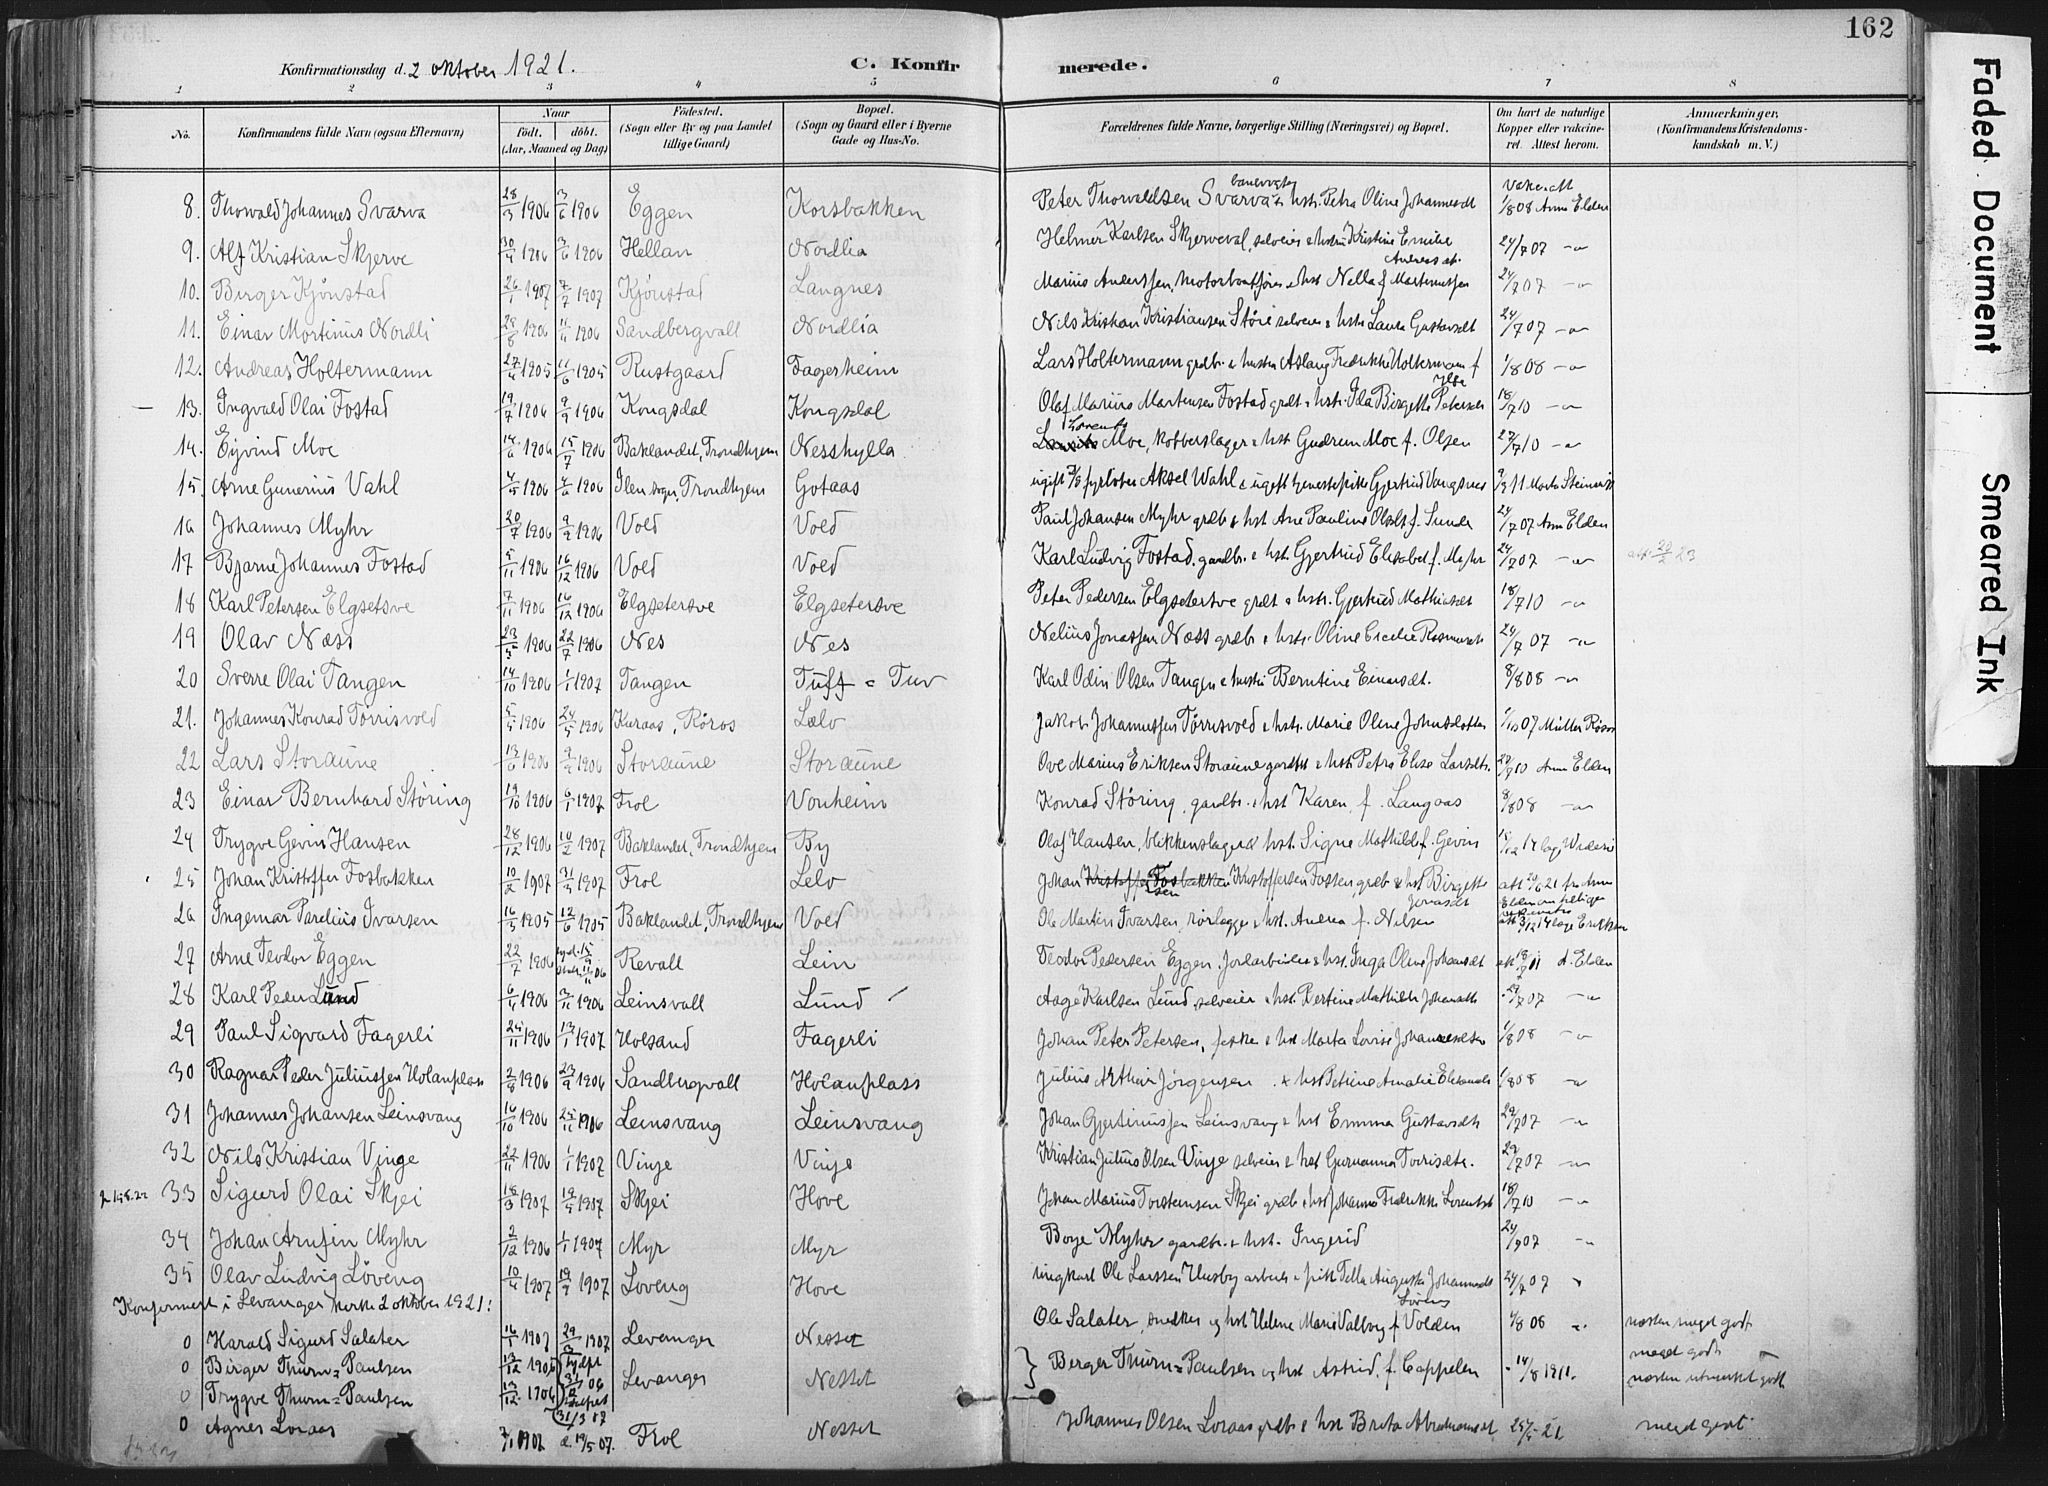 162
Konfirmationsdag d. 2 oktober 1921.
C. Konfirmerede.
1 2 3 4 5 6 7 8
No. Konfirmandens fulde Navn (ogsaa Efternavn) Naar født. døbt. (Aar, Maaned og Dag) Fødested. (Sogn eller By og paa Landet tillige Gaard) Bopæl. (Sogn og Gaard eller i Byerne Gade og Hus-No. Forældrenes fulde Navne, borgerlige Stilling (Næringsvei) og Bopæl. Om havt de naturlige Kopper eller vakcineret. Attest herom. Anmærkninger. (Konfirmandens Kristendomskundskab m. V.)
8. Thorvald Johannes Svarva 28/3 1906 3/6 1906 Eggen Korsbakken Peter Thorvaldsen Svarva & hstr. Petra Oline Johannesdt 1/8 08 Anna Elden
9. Alf Kristian Skjerve 30/4 1906 3/6 1906 Hellan Nordlia Helmer Karlsen Skjerve, selveier & hustru Kristine Emilie Andreasdt. 24/7 07 -"-
10. Birger Kjønstad 26/1 1907 7/7 1907 Kjønstad Langnes Marius Anderssen, motorbaatfører & hst Nella f Martinussen 24/7 07 -"-
11. Einar Mortinus Nordli 28/8 1906 11/11 1906 Sandbergvall Nordlia Nils Kristian Kristiansen Støre selveier & hstr Laura Gustavsdt 24/7 07 -"-
12. Andreas Holtermann 27/4 1905 11/6 1905 Rustgaard Fagerheim Lars Holtermann grdbr. & hustru Aslaug Fredrikke Holtermann f 1/8 08 -"-
13. Ingvald Olai Fostad 19/7 1906 9/9 1906 Kongsdal Kongsdal Olaf Marius Martensen Fostad grdt & hstr. Ida Birgitte Petersdt 18/7 10 -"-
14. Eyvind Moe 14/6 1906 15/7 1906 Baklandet, Trondhjem Nesshylla Lorents Moe, kobberslager & hst Gudrun Moe f. Olsen 27/7 10 -"-
15. Arne Gunerius Vahl 4/5 1906 4/6 1906 Ilen sogn, Trondhjem Gotaas ugift fyrbøter Aksel Wahl & ugift tjenestepike Gjertrud Vangsnes
16 Johannes Myhr 20/7 1906 9/9 1906 Vold Vold Paul Johansen Myhr grdbr & hst Ane Pauline Olsdt f. Sunde 24/7 07 Anna Elden
17 Bjarne Johannes Fostad 5/11 1906 16/12 1906 Vold Vold Karl Ludvig Fostad, gardbr. & hst. Gjertrud Elisabet f. Myhr 24/7 07 -"- att. 20/2 23
18 Karl Petersen Elgsetsve 7/11 1906 16/12 1906 Elgsetersve Elgsetersve Peter Pedersen Elgsetersve grdt & hstr. Gjertrud Mathiasdt 18/7 10 -"-
19 Olav Næss 23/5 1906 22/7 1906 Nes Nes Nelius Jonassen Næss grdbr & hstr. Oline Cecilie Rasmusdt 24/7 07 -"-
20 Sverre Olai Tangen 14/10 1906 1/1 1907 Tangen Tuff = Tuv Karl Odin Olsen Tangen & hustru Berntine Einarsdt. 8/8 08 -"-
21. Johannes Konrad Torrisvold 5/5 1906 24/5 1906 Kuraas, Røros Lelv Jakob Johannessen Tørrisvold & hstr. Marie Oline Johnsdatter 1/10 07 Müller Røros
22 Lars Storaune 13/6 1906 9/9 1906 Storaune Storaune Ove Marius Eriksen Storaune gardbr & hst. Petra Elise Larsdt. 27/7 10 Anna Elden
23 Einar Bernhard Støring 19/10 1906 6/1 1907 Frol Vonheim Konrad Støring, gardbr. & hst Karen f. Langaas 8/8 08 -"-
24 Trygve Gevin Hansen 28/12 1906 10/2 1907 Baklandet, Trondhjem By Olaf Hansen, blikkenslager & hst. Signe Mathilde f. Gevin
25 Johan Kristoffer Fosbakken 10/2 1907 31/3 1907 Frol Lelv Johan Kristoffersen Fosten grdbr & hst Birgitte Jonasdt att 20/6 21 fra Anna Elden
26 Ingemar Parelius Ivarsen 16/3 1905 12/6 1905 Baklandet, Trondhjem Vold Ole Martin Ivarsen, rørlegger & hst. Andrea f. Nilsen att 3/12 14 læge Eriksen
27 Arne Teodor Eggen 22/7 1906 hjd. 15/9 stadf. 11/11 06 Revall Lein Teodor Pedersen Eggen, Jordarbeider & hst. Inga Oline Johansdt att 18/7 11 A. Elden
28 Karl Peder Lund 6/4 1906 3/11 1906 Leinsvall Lund Aage Karlsen Lund, selveier & hst. Bertine Mathilde Johansdt. 29/7 07 -"-
29 Paul Sigvard Fagerli 24/11 1906 13/1 1907 Holsand Fagerli Johan Peter Petersen, fisker & hst Marta Lovise Johannesdt 1/8 08 -"-
30 Ragnar Peder Juliussen Holanplass 2/8 1906 23/9 1906 Sandbergvall Holanplass Julius Arthur Jørgensen & hst Petrine Amalie 1/8 08 -"-
31 Johannes Johansen Leinsvang 16/10 1906 25/11 1906 Leinsvang Leinsvang Johan Gjertinussen Leinsvang & hst Emma Gustavsdt. 29/7 07 -"-
32 Nils Kristian Vinge 22/11 1906 1/1 1907 Vinje Vinje Kristian Julius Olsen Vinje selveier & hst Gurianna Torrisdtr. 29/7 07 -"-
33 Sigurd Olai Skjei 18/3 1907 19/5 1907 Skjei Hove Johan Marius Torstensen Skjei grdbr & hst Johanna Fredrikke Lorentsdt 18/7 10 -"-
34 Johan Arnfin Myhr 2/12 1906 1/1 1907 Myr Myr Boye Myhr gardbr. & hst. Ingerid 24/9 07 -"-
35 Olav Ludvig Løveng 10/4 1907 19/9 1907 Loveng Hove ungkarl Ole Larssen Husby arbeider & pike Tella Augusta Johannesdt Løveng 24/7 07 "
Konfirmert i Levanger kirke 2 oktober 1921:
0 Harald Sigurd Salater 16/1 1907 29/3 1907 Levanger Nesset Ole Salater, snedker og hst Helene Marie Valborg f Volden 4/8 08 " næsten meget godt
0 Birger Thurn=Paulsen 13/12 1905 Levanger Nesset Berger Thurn=Paulsen og hst Astrid, f. Cappelen 14/8 1911. meget godt
0 Trygve Thurn=Paulsen 13/12 1906 31/3 07 næsten utmerket godt
0 Agnes Loraas 7/1 1907 d. 19/5 07. Frol Nesset Johannes Olsen Loraas grdbr & hst Brita Abrahamsdt 25/5 21 meget godt
Faded Document
Smeared Ink